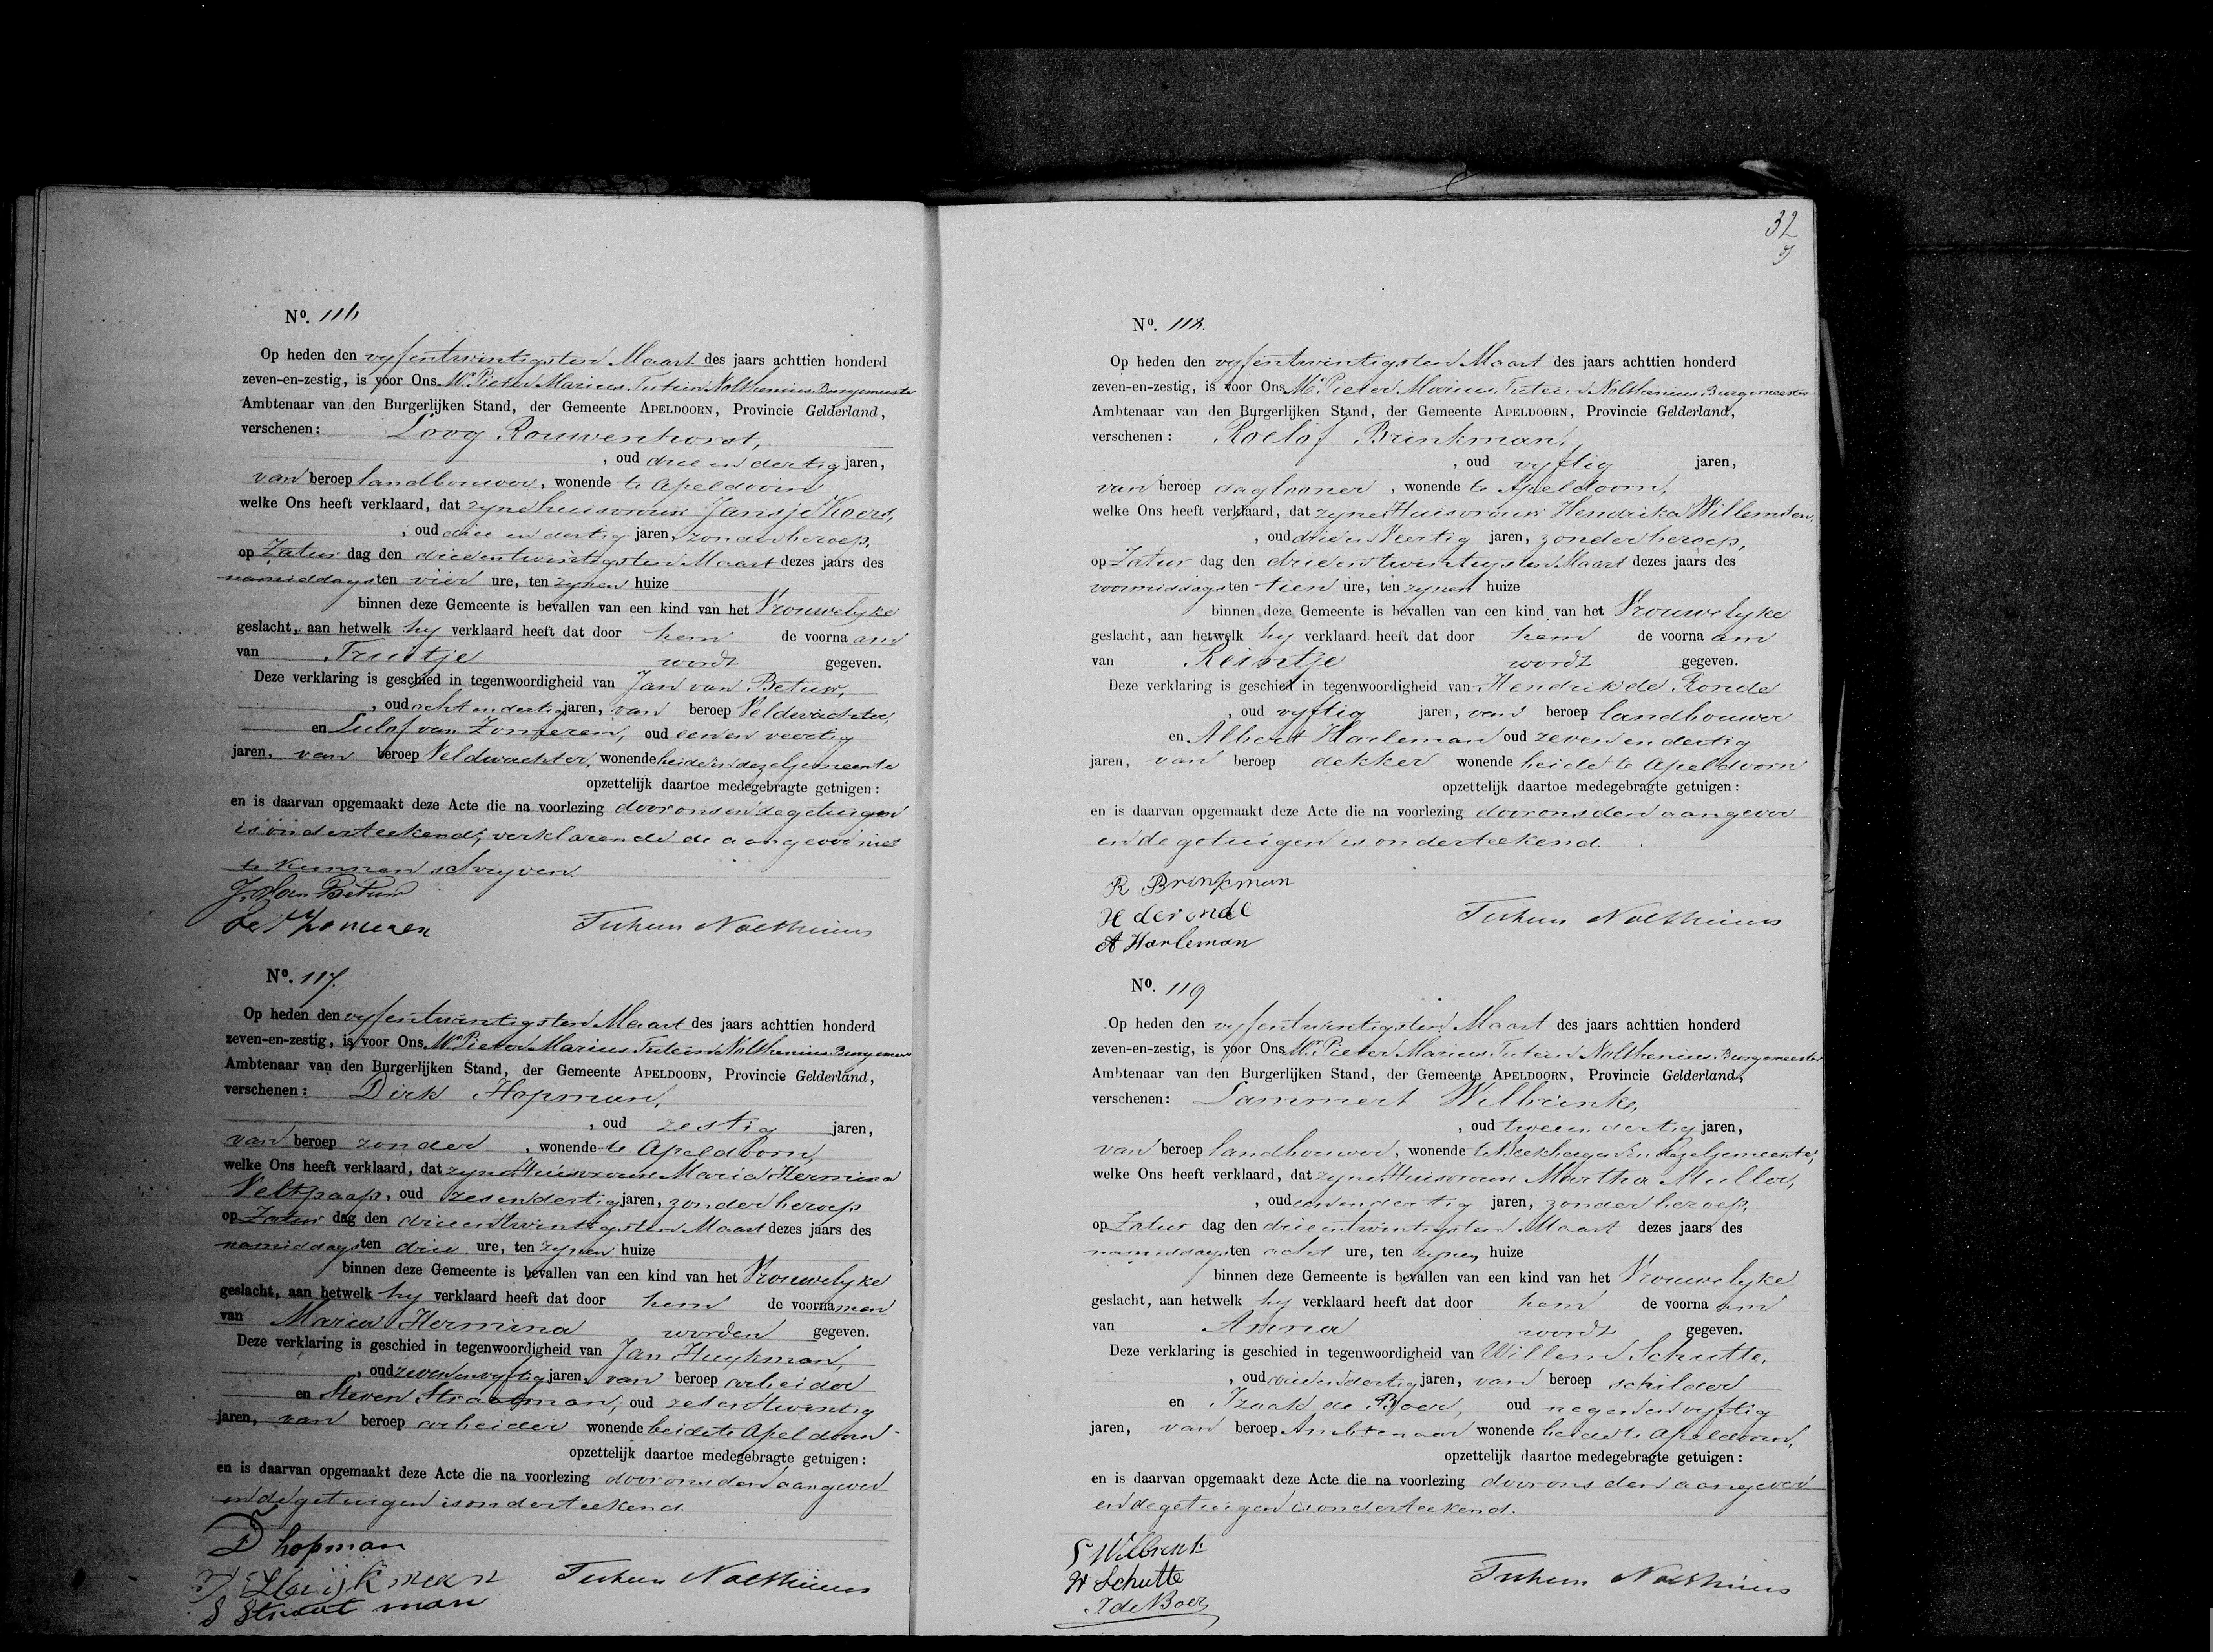 Nº. 116
Op heden den vyfentwintigsten Maart des jaars achttien honderd
zeven-en-zestig, is voor Ons Mr Pieter Marius Tutein Nolthenius Burgemeester
Ambtenaar van den Burgerlijken Stand, der Gemeente APELDOORN, Provincie Gelderland,
verschenen: Loog Rouwenhorst,
, oud drie en dertig jaren,
van beroep landbouwer, wonende te Apeldoorn
welke Ons heeft verklaard, dat zyne huisvrouw Jansje Koers,
, oud drie en dertig jaren, zonder beroep,
op Zatur dag den drieentwintigsten Maart dezes jaars des
namiddags ten vier ure, ten zynen huize
binnen deze Gemeente is bevallen van een kind van het Vrouwelyke
geslacht, aan hetwelk hy verklaard heeft dat door hem de voorna am
van Truitje wordt gegeven.
Deze verklaring is geschied in tegenwoordigheid van Jan van Betuw,
, oud acht en dertig jaren, van beroep Veldwachter,
en Lulof van Zomeren, oud een en veertig
jaren, van beroep Veldwachter, wonende beide in dezelfgemeente
opzettelijk daartoe medegebragte getuigen:
en is daarvan opgemaakt deze Acte die na voorlezing door ons en de getuigen
is onderteekend, verklarende de aangever niet
te kunnen schryven.
J. Van Betuw
L v Zomeren Tutein Nolthenius
Nº. 117.
Op heden den vyfentwintigsten Maart des jaars achttien honderd
zeven-en-zestig, is voor Ons Mr Pieter Marius Tutein Nolthenius Burgemeester
Ambtenaar van den Burgerlijken Stand, der Gemeente APELDOORN, Provincie Gelderland,
verschenen: Dirk Hopman,
, oud zestig jaren,
van beroep zonder, wonende te Apeldoorn,
welke Ons heeft verklaard, dat zyne Huisvrouw Maria Hermina
Veltpaap, oud zes en dertig jaren, zonder beroep
op Zatur dag den drieentwintigsten Maart dezes jaars des
namiddags ten drie ure, ten zynen huize
binnen deze Gemeente is bevallen van een kind van het Vrouwelyke
geslacht, aan hetwelk hy verklaard heeft dat door hem de voorna men
van Maria Hermina worden gegeven.
Deze verklaring is geschied in tegenwoordigheid van Jan Huykman,
, oud zeven en vyftig jaren, van beroep arbeider
en Steven Straatman, oud zes en twintig
jaren, van beroep arbeider wonende beide te Apeldoorn
opzettelijk daartoe medegebragte getuigen:
en is daarvan opgemaakt deze Acte die na voorlezing door ons den aangever
en de getuigen is onderteekend.
D hopman
J Huijkman Tutein Nolthenius
S Straatman
32
Nº. 118.
Op heden den vyfentwintigsten Maart des jaars achttien honderd
zeven-en-zestig, is voor Ons Mr Pieter Marius Tutein Nolthenius Burgemeester
Ambtenaar van den Burgerlijken Stand, der Gemeente APELDOORN, Provincie Gelderland,
verschenen: Roelof Brinkman,
, oud vyftig jaren,
van beroep daglooner, wonende te Apeldoorn,
welke Ons heeft verklaard, dat zyne Huisvrouw Hendrika Willemsen,
, oud drie en Veertig jaren, zonder beroep,
op Zatur dag den drieentwintigsten Maart dezes jaars des
voormiddags ten tien ure, ten zynen huize
binnen deze Gemeente is bevallen van een kind van het Vrouwelyke
geslacht, aan hetwelk hy verklaard heeft dat door hem de voorna am
van Reintje wordt gegeven.
Deze verklaring is geschied in tegenwoordigheid van Hendrik de Ronde
, oud vyftig jaren, van beroep landbouwer
en Albert Harleman oud zeven en dertig
jaren, van beroep dekker wonende beide te Apeldoorn
opzettelijk daartoe medegebragte getuigen:
en is daarvan opgemaakt deze Acte die na voorlezing door ons den aangever
en de getuigen is onderteekend.
R Brinkman
H de ronde Tutein Nolthenius
A Harleman
Nº. 119
Op heden den vyfentwintigsten Maart des jaars achttien honderd
zeven-en-zestig, is voor Ons Mr Pieter Marius Tutein Nolthenius Burgemeester
Ambtenaar van den Burgerlijken Stand, der Gemeente APELDOORN, Provincie Gelderland,
verschenen: Lammert Wilbrink,
, oud twee en dertig jaren,
van beroep landbouwer, wonende te Beekbergen in dezelfgemeente,
welke Ons heeft verklaard, dat zyne Huisvrouw Martha Muller,
, oud een en dertig jaren, zonder beroep,
op Zatur dag den drieentwintigsten Maart dezes jaars des
namiddags ten acht ure, ten zynen huize
binnen deze Gemeente is bevallen van een kind van het Vrouwelyke
geslacht, aan hetwelk hy verklaard heeft dat door hem de voorna am
van Anna wordt gegeven.
Deze verklaring is geschied in tegenwoordigheid van Willem Schutte,
, oud drie en dertig jaren, van beroep schilder
en Izaak de Boer, oud negen en vyftig
jaren, van beroep Ambtenaar wonende beide te Apeldoorn,
opzettelijk daartoe medegebragte getuigen:
en is daarvan opgemaakt deze Acte die na voorlezing door ons den aangever
en de getuigen is onderteekend.
L Wilbrink
W Schutte Tutein Nolthenius
I de Boer